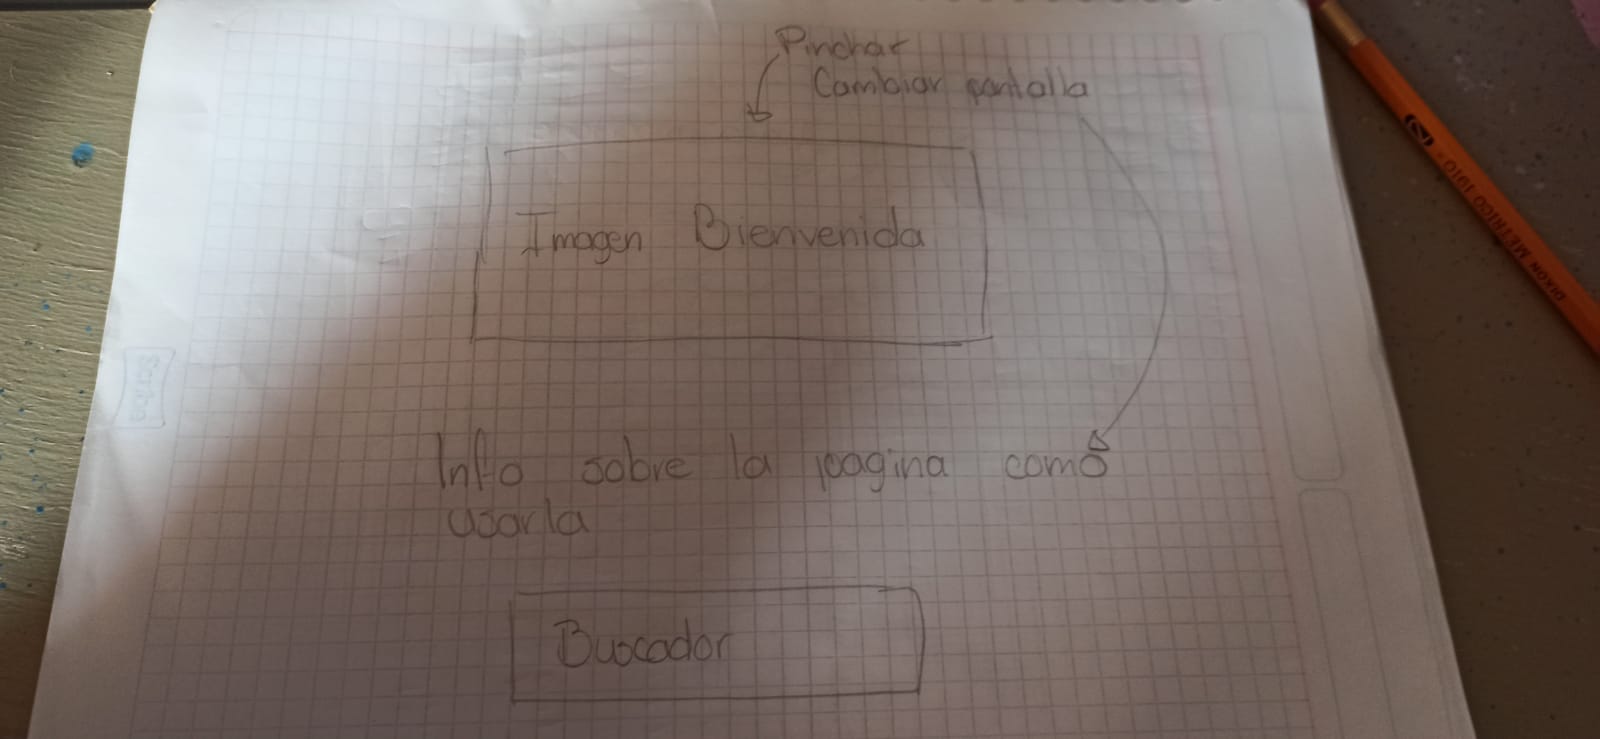 Pinchar
Cambiar pantalla
Imagen Bienvenida
Info sobre la pagina como
usarla
Buscador
Scribe
DIXON METRICO 1910